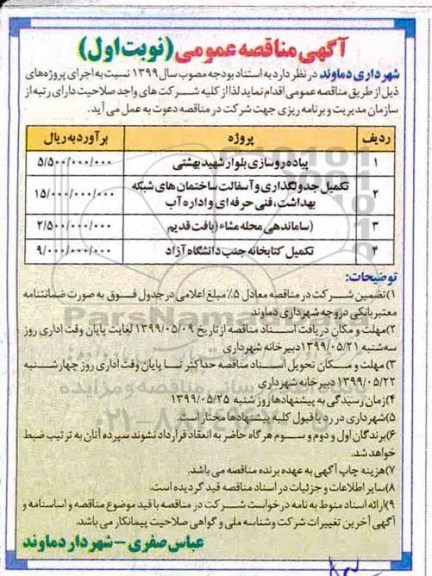 آگهی مناقصه عمومی (نوبت اول)
شهرداری دماوند در نظر دارد به استناد بودجه مصوب سال ۱۳۹۹ نسبت به اجرای پروژه های
ذیل از طریق مناقصه عمومی اقدام نماید لذا از کلیه شرکت های واجد صلاحیت دارای رتبه از
سازمان مدیریت و برنامه ریزی جهت شرکت در مناقصه دعوت به عمل می آید.
ردیف پروژه برآورد به ریال
۱ پیاده رو سازی بلوار شهید بهشتی ۵/۵۰۰/۰۰۰/۰۰۰
۲ تکمیل جدولگذاری و آسفالت ساختمان های شبکه ۱۵/۰۰۰/۰۰۰/۰۰۰
بهداشت، فنی حرفه ای و اداره آب
۳ (ساماندهی محله مشاء (بافت قدیم ۲/۵۰۰/۰۰۰/۰۰۰
۴ تکمیل کتابخانه جنب دانشگاه آزاد ۹/۰۰۰/۰۰۰/۰۰۰
توضیحات:
۱)تضمین شرکت در مناقصه معادل ۵٪ مبلغ اعلامی در جدول فوق به صورت ضمانتنامه
معتبر بانکی در وجه شهرداری دماوند
۲)مهلت و مکان دریافت اسناد مناقصه از تاریخ ۱۳۹۹/۰۵/۰۹ لغایت پایان وقت اداری روز
سه شنبه ۱۳۹۹/۰۵/۲۱ دبیرخانه شهرداری
۳)مهلت و مکان تحویل اسناد مناقصه حداکثر تا پایان وقت اداری روز چهارشنبه
۱۳۹۹/۰۵/۲۲ دبیرخانه شهرداری
۴)زمان رسیدگی به پیشنهادها روز شنبه ۱۳۹۹/۰۵/۲۵
۵)شهرداری در رد یا قبول کلیه پیشنهادها مختار است
۶)برندگان اول و دوم و سوم هر گاه حاضر به انعقاد قرارداد نشوند سپرده آنان به ترتیب ضبط
خواهد شد.
۷)هزینه چاپ آگهی به عهده برنده مناقصه می باشد.
۸)سایر اطلاعات و جزئیات در اسناد مناقصه قید گردیده است.
۹)ارائه اسناد منوط به نامه درخواست شرکت در مناقصه با قید موضوع مناقصه و اساسنامه و
آگهی آخرین تغییرات شرکت و شناسه ملی و گواهی صلاحیت پیمانکار می باشد.
عباس صفری - شهردار دماوند